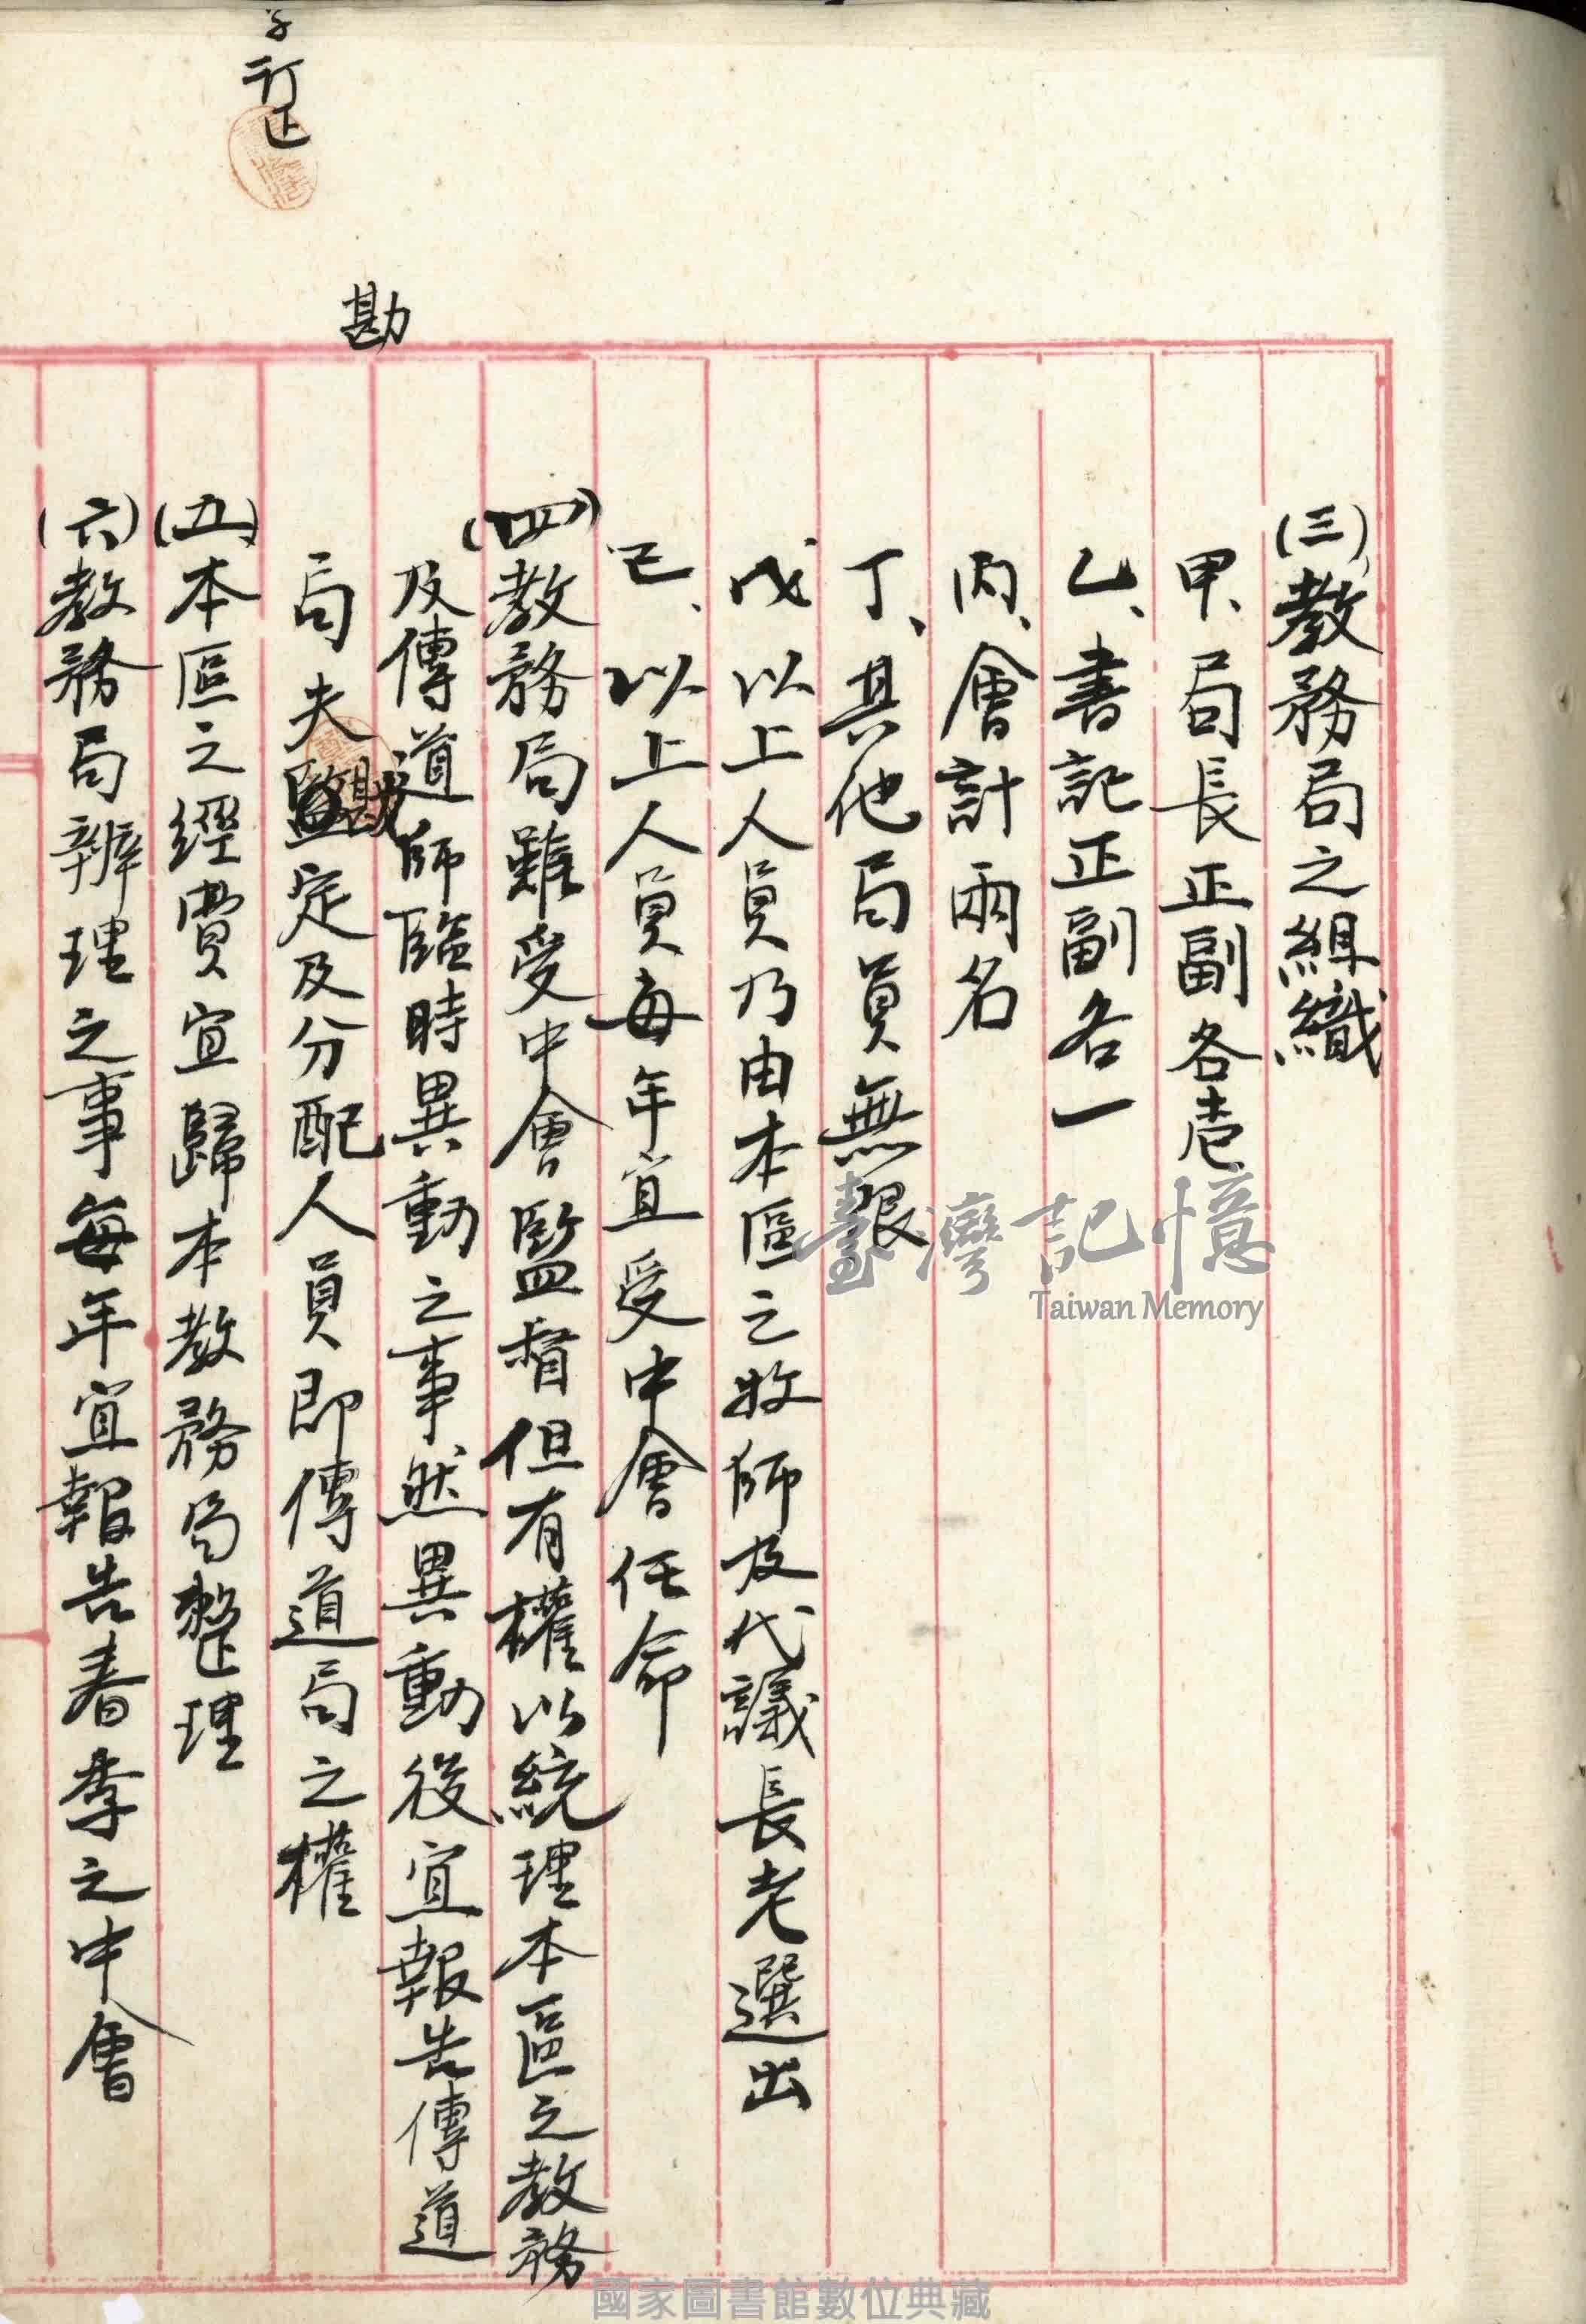 (三)教務局之組織
甲、局長正副各壱
乙、書記正副各一
丙、會計兩名
丁、其他局員無限
戊、以上人員乃由本區之牧師及代議長老選出
已、以上人員每年宜受中會任命
(四)教務局雖受中會監督但有權以統理本區之教務
及傳道師臨時異動之事然異動後宜報告傳道
局夫勘定及分配人員即傳道局之權
勘
(五)本區之經費宜歸本教務局整理
(六)教務局辦理之事每年宜報告春季之中會
字訂正
臺灣記憶
Taiwan Memory
國家圖書館數位典藏